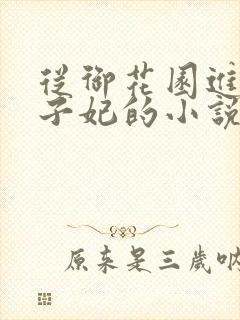 從御花園進
子妃的小說
原來是三歲吶